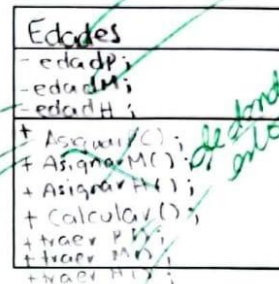 Edades
- edadP;
- edadM;
- edadH;
+ AsignarP();
+ AsignarM();
+ AsignarH();
+ Calcular();
+ traer P();
+ traer M();
+ traer H();
de donde
esto